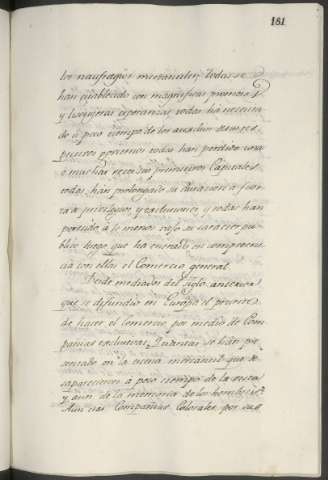 181
los naufragios mercantiles. Todas se
han establecido con magnificas promesas
y lisongeras esperanzas, todas han necesita
do à poco tiempo de los auxilios de sus res
pectivos goviernos todas han perdido una
ò muchas veces sus primeros Capitales
todas han prolongado su duracion à fuer
za de privilegios, y exclusiones, y todas han
perdido, à lo menos, su caracter pu
blico luego que ha entrado en competen
cia con ellas el Comercio general
Desde mediados del siglo anterior
que se difundio en Europa el proyecto
de hacer el comercio por medio de Com
pañias exclusivas, Quantas se han pre
sentado en la escena mercantil que de
saparecieron a poco tiempo de la vista
y aun de la memoria de los hombres?
Aun las Compañias Colosales por sus